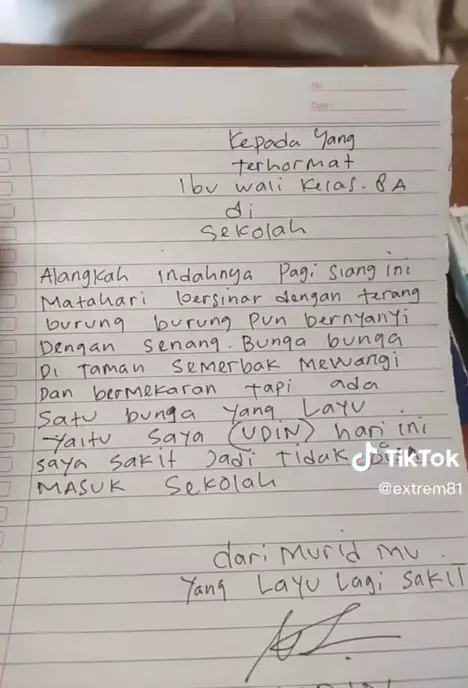 No
Date :
Kepada Yang
terhormat
Ibu wali kelas. 8A
di
Sekolah
Alangkah indahnya Pagi siang ini
Matahari bersinar dengan terang
burung burung pun bernyanyi
Dengan senang. Bunga bunga
Di taman semerbak mewangi
Dan bermekaran tapi ada
Satu bunga yang Layu.
-yaitu saya (UDIN) hari ini
saya sakit Jadi tidak
MASUK Sekolah
TikTok
@extrem81
dari Murid mu.
Yang Layu Lagi SAKIT